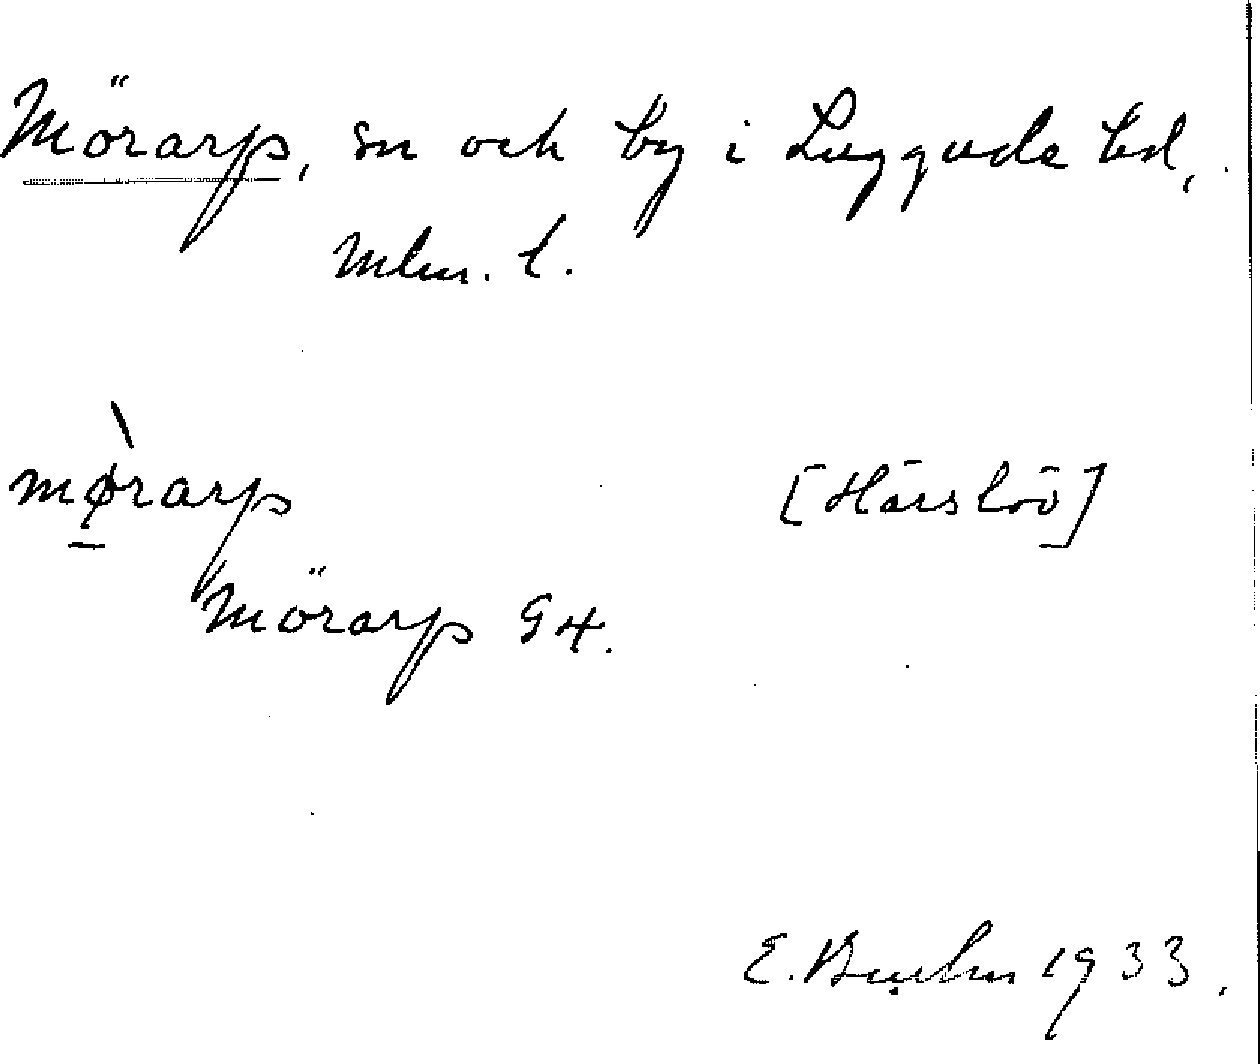 Mörarp, sn och by i Luggude hd,
Mlm. l.
mørarp [Härslöv]
Mörarp G4.
E. 1933.